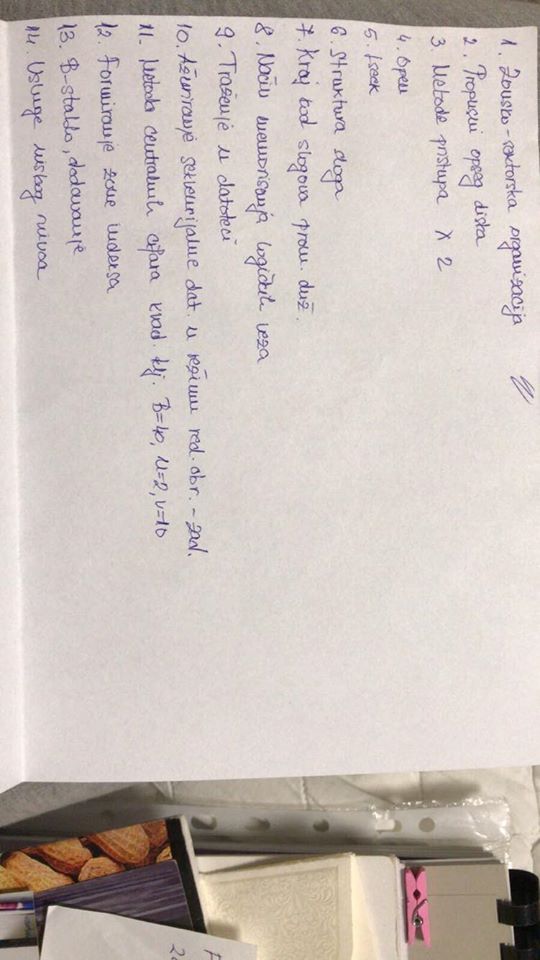 1. Zonsko-sektorska organizacija
2. Propusni opseg diska
3. Metode pristupa X 2
4. Open
5. Lseek
6. Struktura sloga
7. Kraj kod slogova prom. duž.
8. Način memorisanja logičkih veza
9. Traženje u datoteci
10. Ažuriranje sekvencijalne dat. u režimu red. obr. - zad.
11. Metoda centralnih cifara kvad. klj. B=40, n=2, v=10
12. Formiranje zone indeksa
13. B-stablo, dodavanje
14. Usluge niskog nivoa